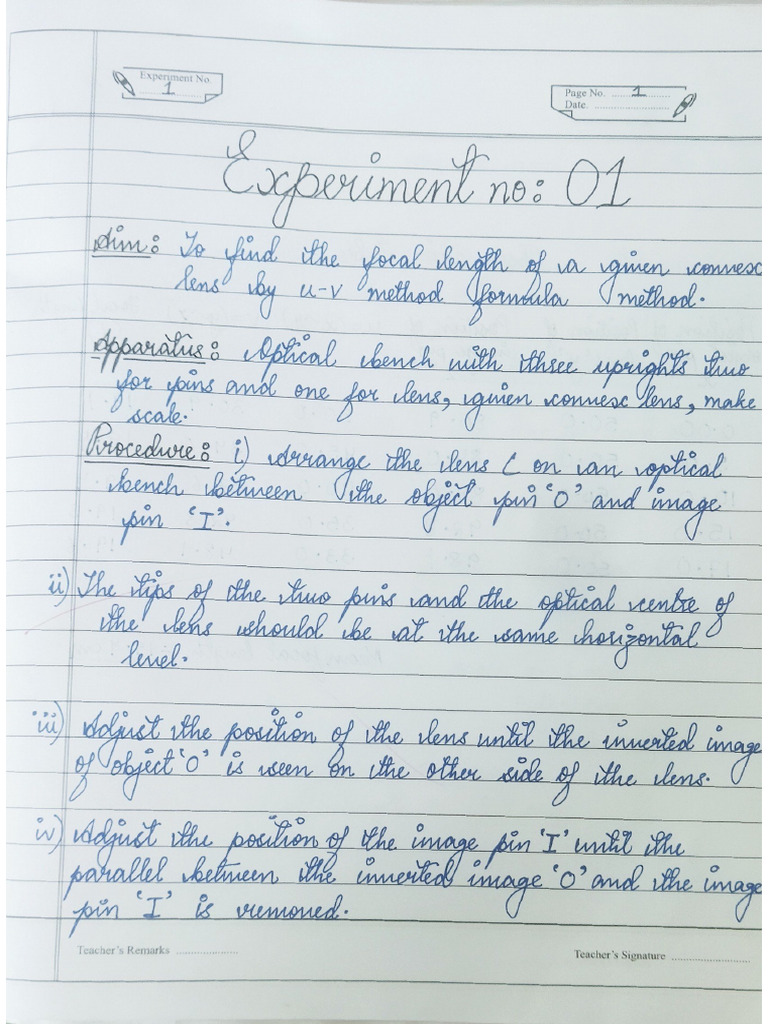 Experiment No.
1
Page No. 1
Date.
Experiment no: 01
Aim: To find the focal length of a given convex
lens by u-v method formula method.
Apparatus: Optical bench with three uprights two
for pins and one for lens, given convex lens, make
scale.
Procedure: i) Arrange the lens L on an optical
bench between the object pin 'O' and image
pin 'I'.
ii) The tips of the two pins and the optical centre of
the lens should be at the same horizontal
level.
iii) Adjust the position of the lens until the inverted image
of object 'O' is seen on the other side of the lens.
iv) Adjust the position of the image pin 'I' until the
parallel between the inverted image 'O' and the image
pin 'I' is removed.
Teacher's Remarks
Teacher's Signature